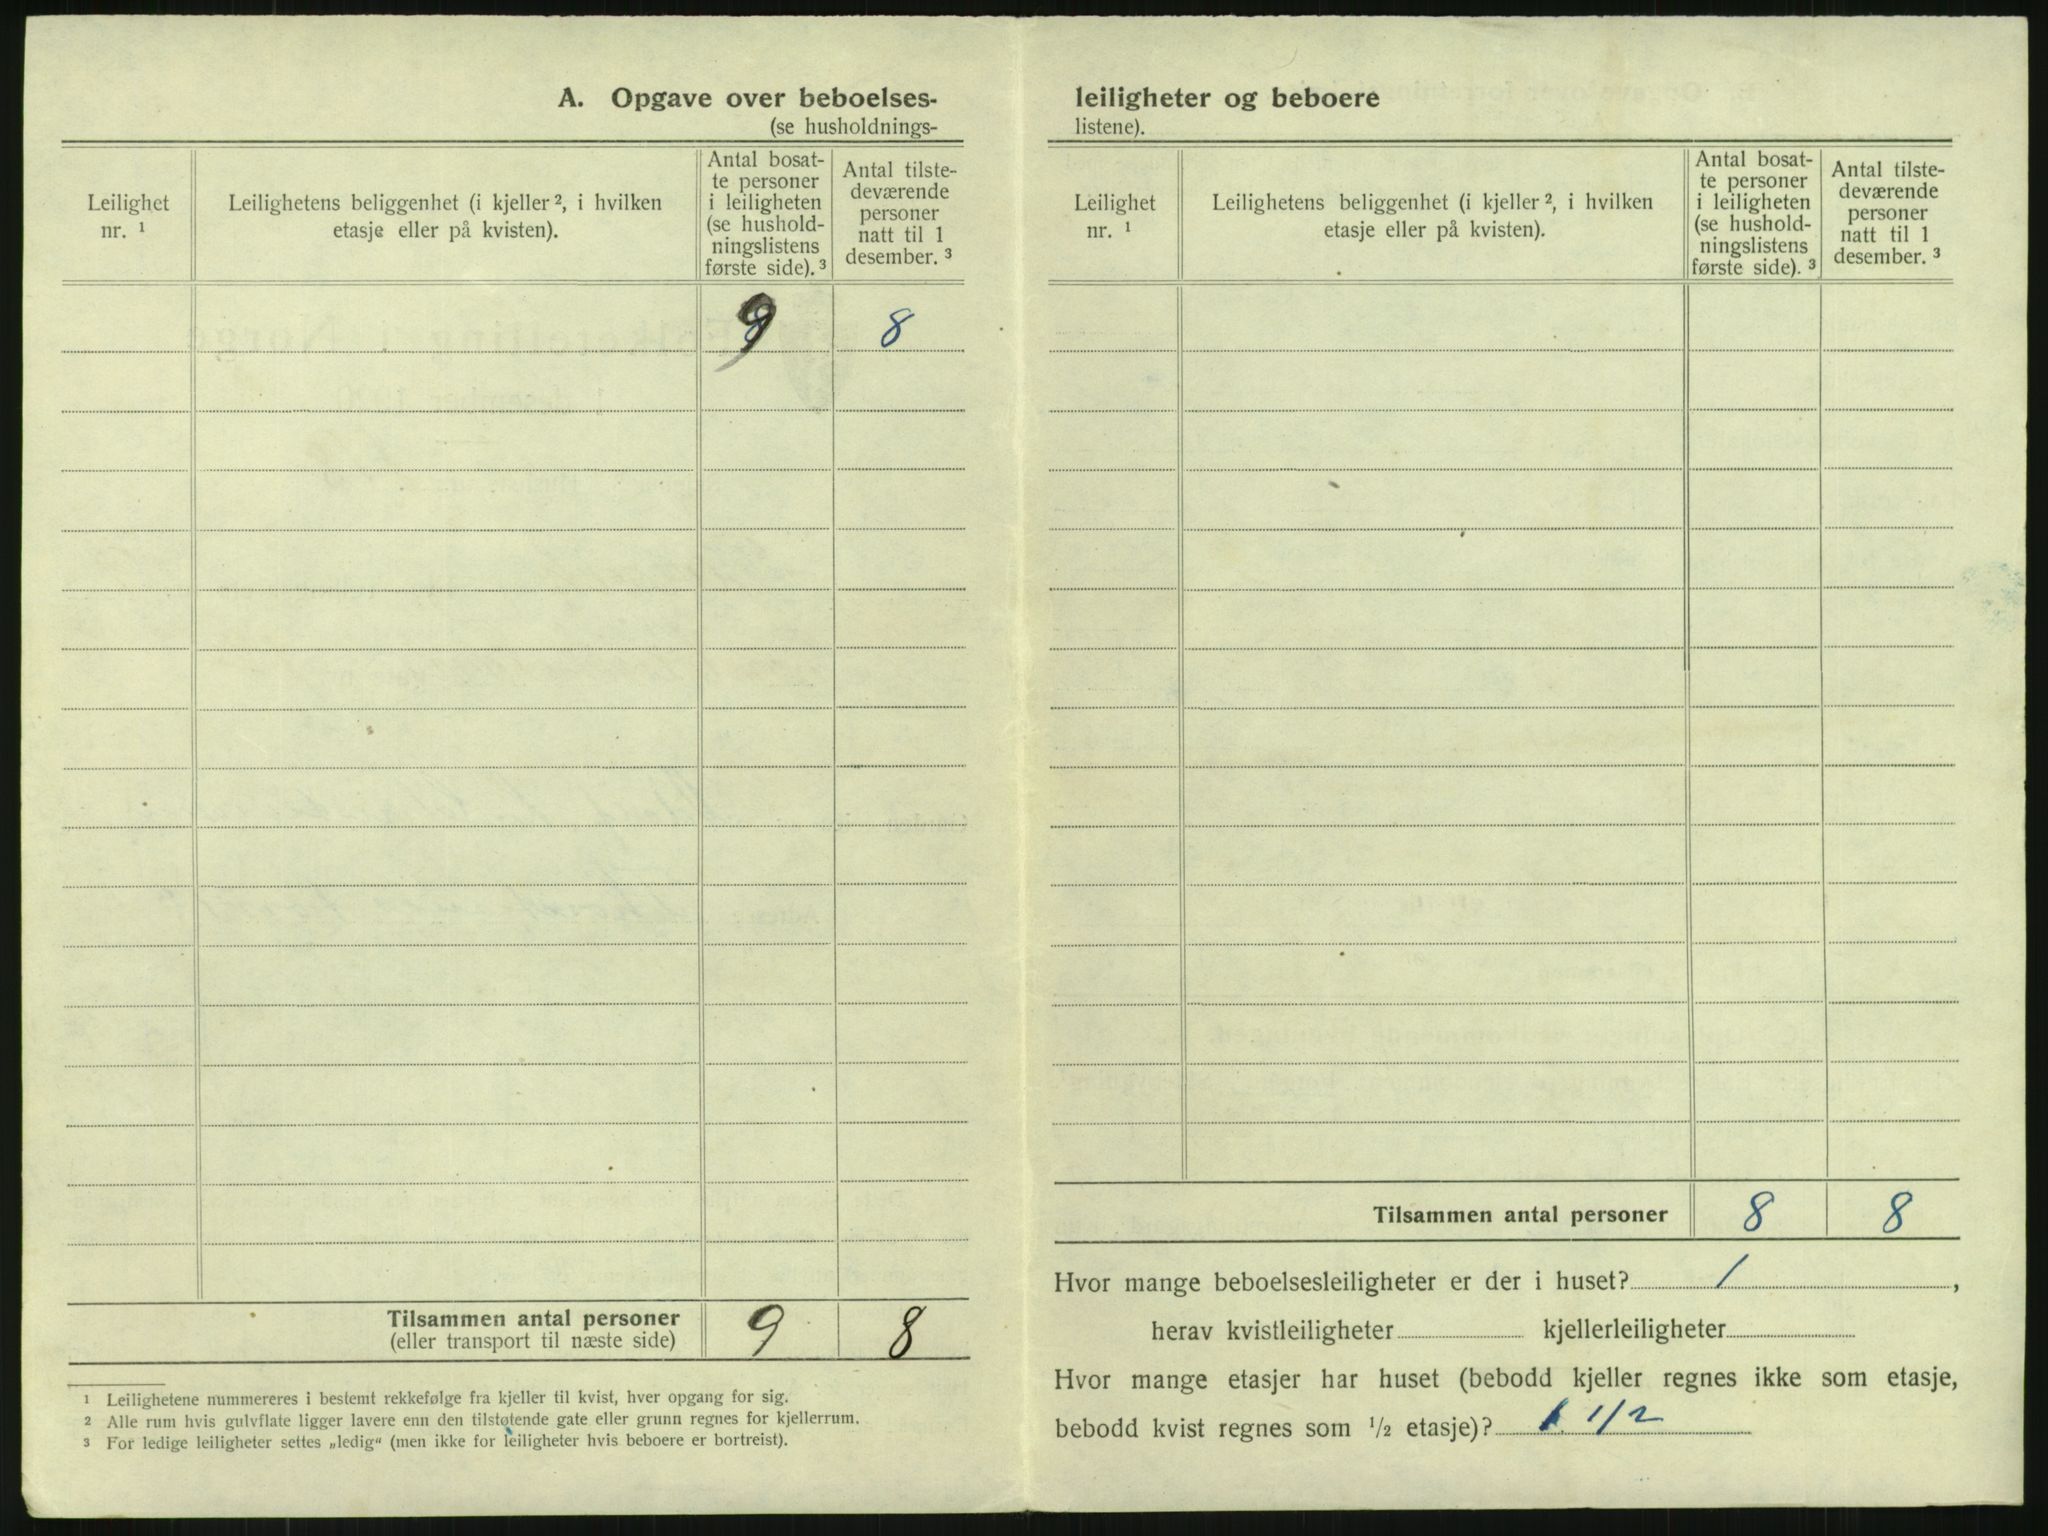 A. Opgave over beboelses-
(se husholdnings-
Leilighet nr. ¹
Leilighetens beliggenhet (i kjeller ², i hvilken
etasje eller på kvisten).
Antal bosat-
te personer
i leiligheten
(se hushold-
ningslistens
første side). ³
Antal tilste-
deværende
personer
natt til 1
desember. ³
9 8
Tilsammen antal personer 9 8
(eller transport til næste side)
¹ Leilighetene nummereres i bestemt rekkefølge fra kjeller til kvist, hver opgang for sig.
² Alle rum hvis gulvflate ligger lavere enn den tilstøtende gate eller grunn regnes for kjellerrum.
³ For ledige leiligheter settes „ledig“ (men ikke for leiligheter hvis beboere er bortreist).
leiligheter og beboere
listene).
Leilighet
nr. ¹
Leilighetens beliggenhet (i kjeller ², i hvilken
etasje eller på kvisten).
Antal bosat-
te personer
i leiligheten
(se hushold-
ningslistens
første side). ³
Antal tilste-
deværende
personer
natt til 1
desember. ³
Tilsammen antal personer 8 8
Hvor mange beboelsesleiligheter er der i huset? 1,
herav kvistleiligheter kjellerleiligheter
Hvor mange etasjer har huset (bebodd kjeller regnes ikke som etasje,
bebodd kvist regnes som ½ etasje)? 1 1/2